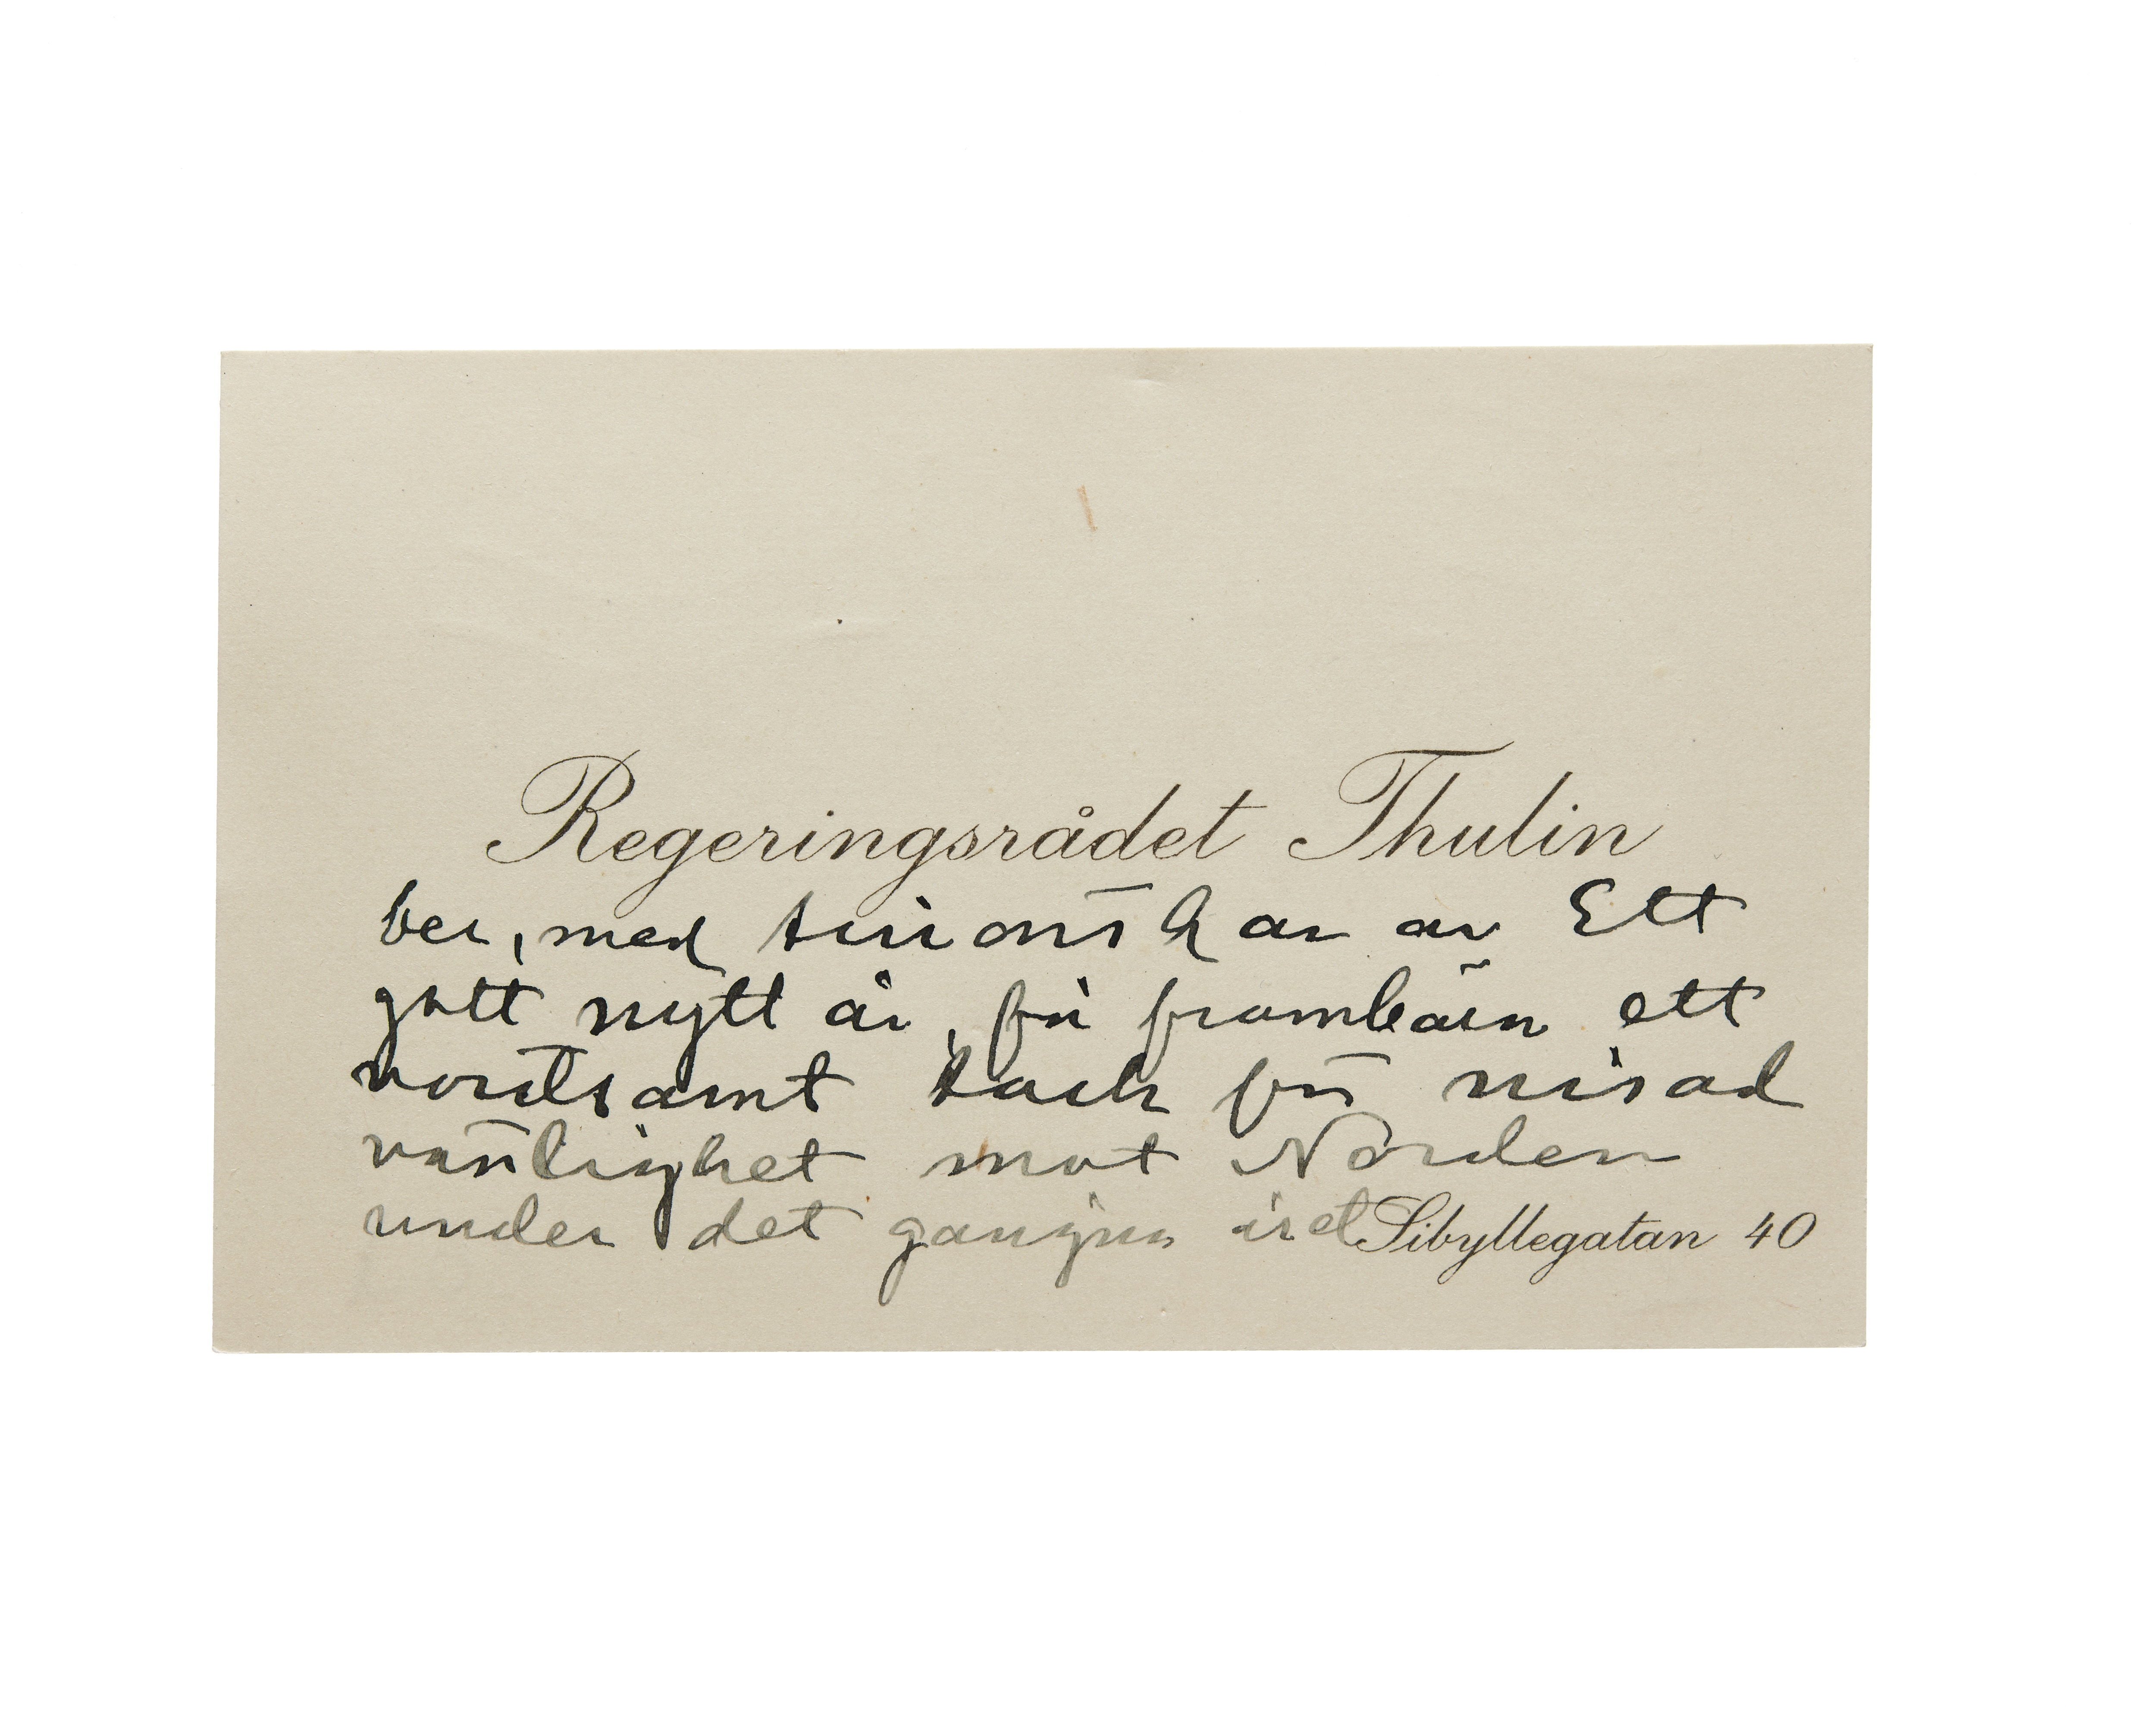 Regeringsrådet Thulin
ber, med tillönskan av Ett
gott nytt år, få frambära ett
vördsamt tack för visad
vänlighet mot Norden
under det gångna året Sibyllegatan 40